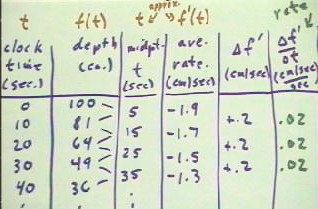 approx.
t f(t) t f'(t) rate
clock depth midpt. ave. Δf' Δf'
time (cm.) t rate. (cm/sec) Δt
(sec.) (sec) (cm/sec) (cm/sec)
sec
0 100
5 -1.9
10 81 +.2 .02
15 -1.7
20 64 +.2 .02
25 -1.5
30 49 +.2 .02
35 -1.3
40 36